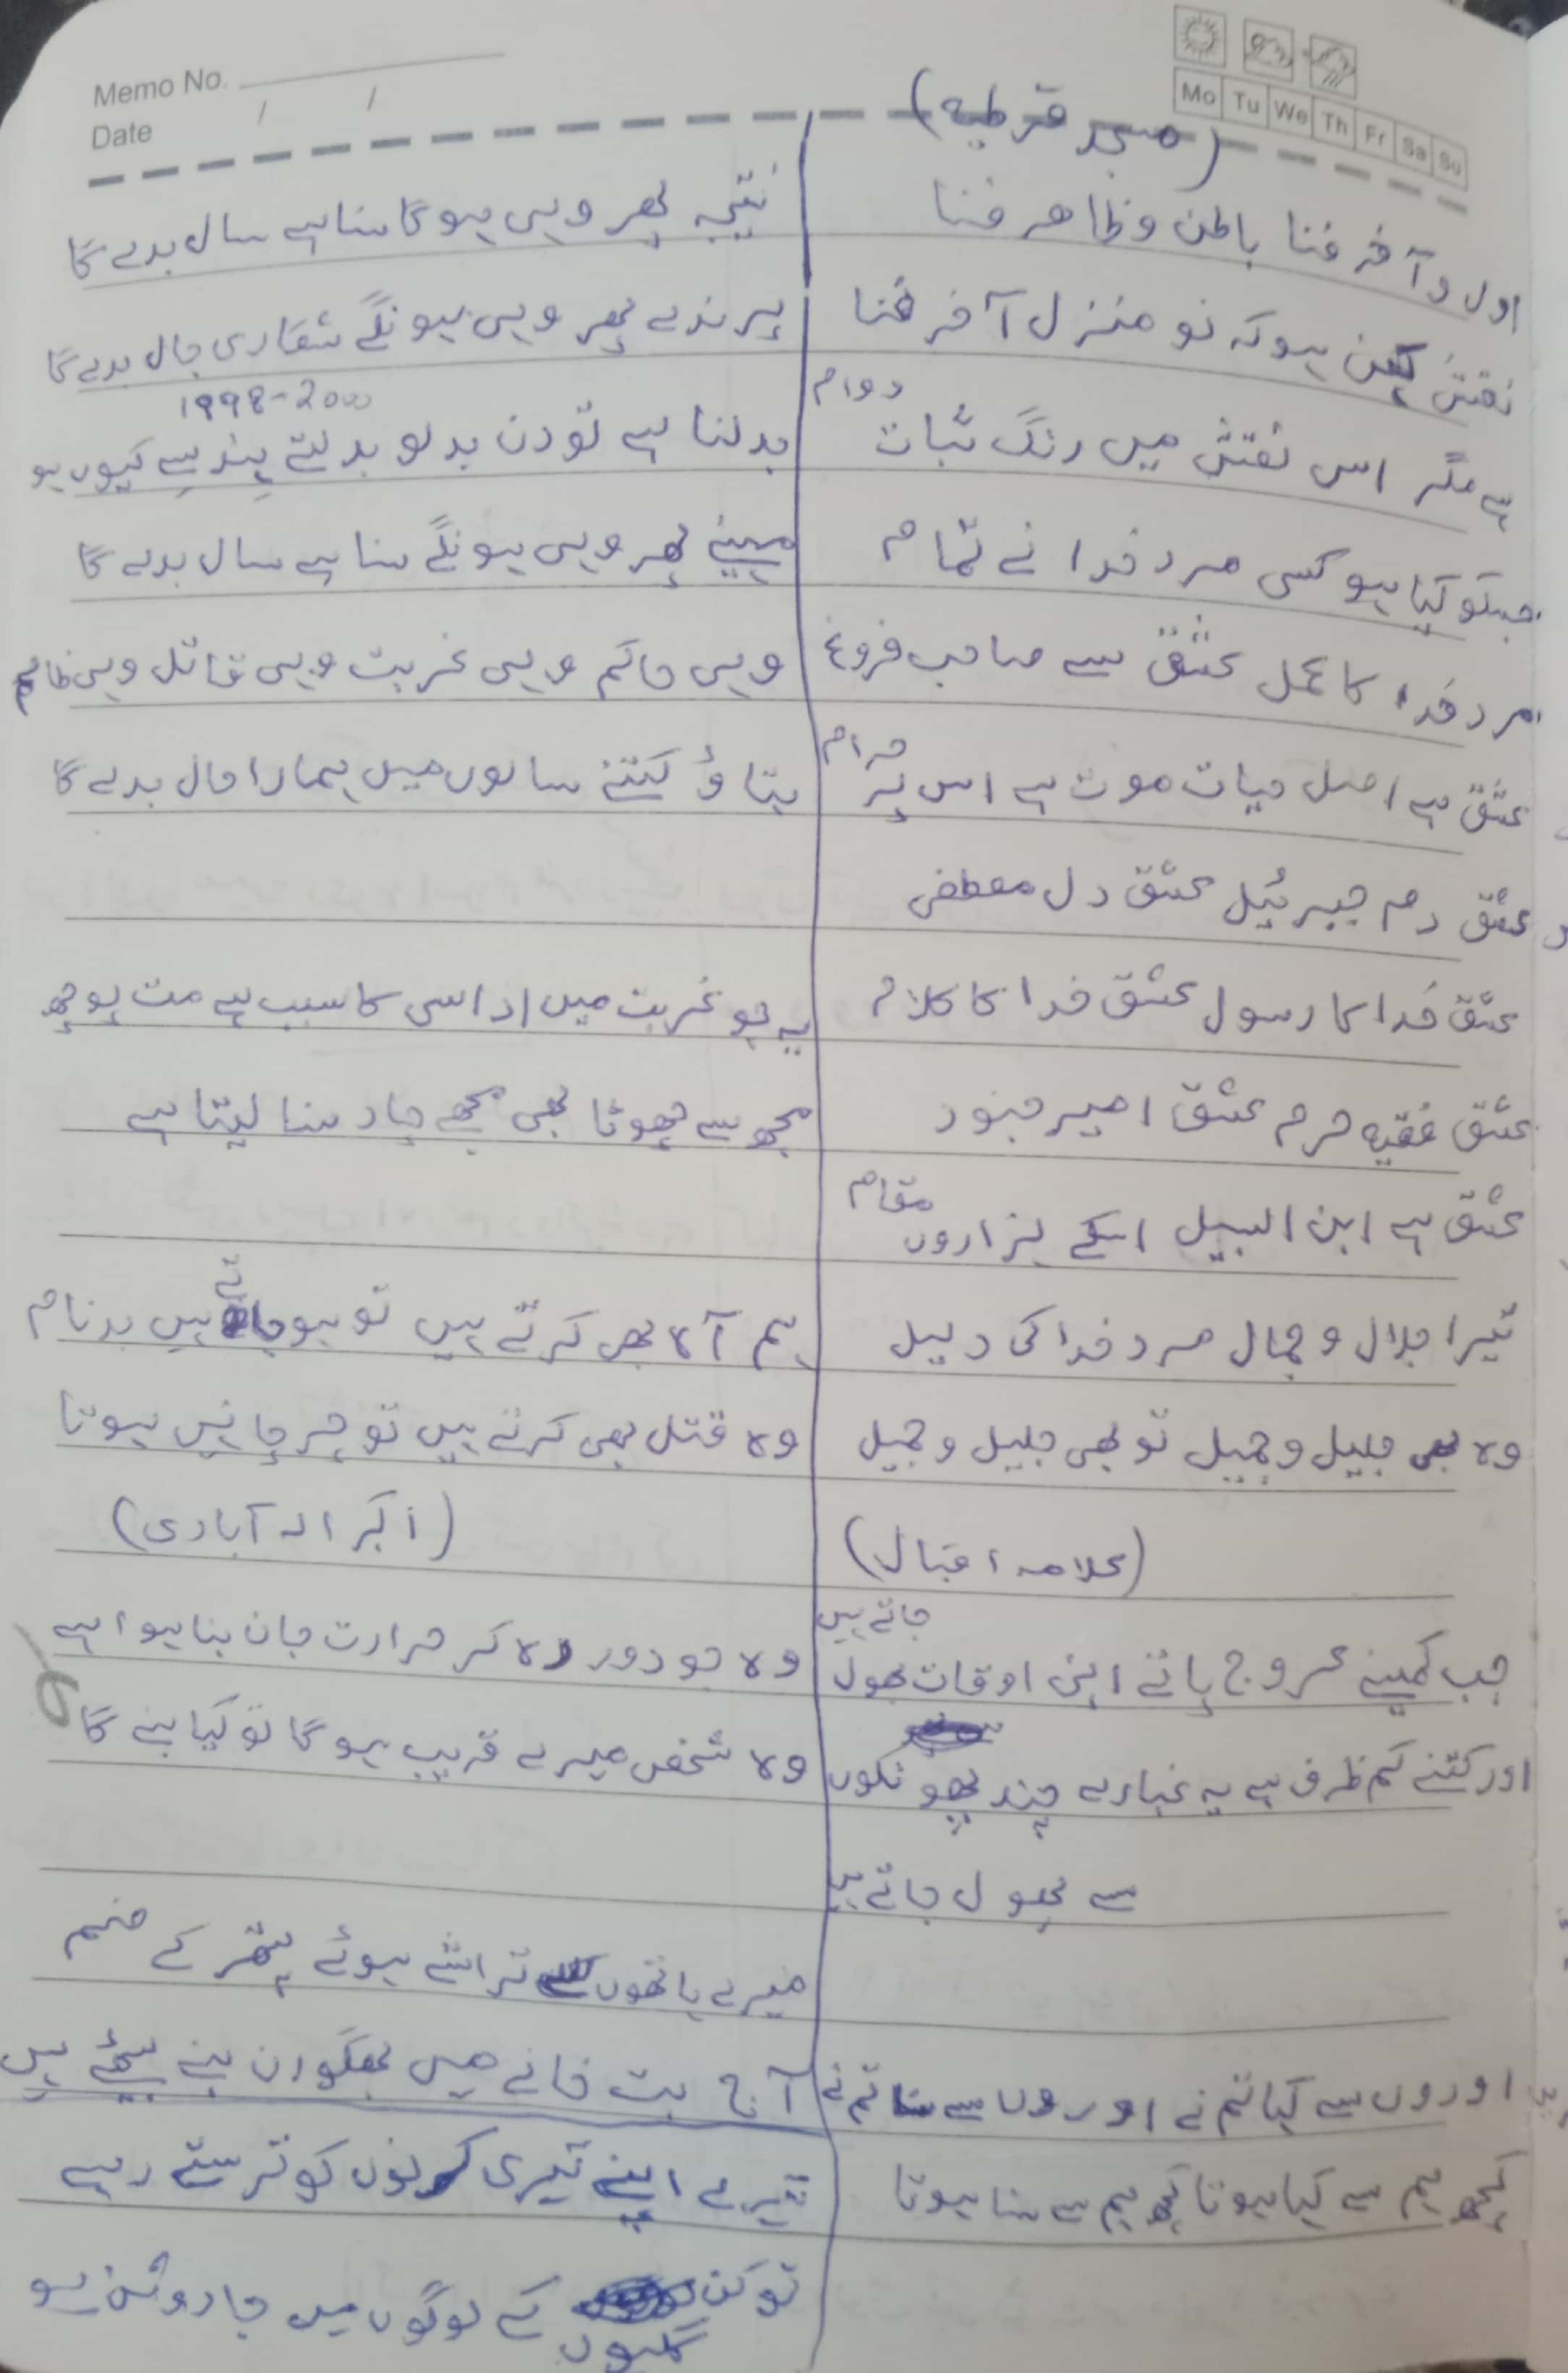 Memo No.
Date / /
Mo Tu We Th Fr Sa Su
(مسجد قرطبہ)
اول و آخر فنا باطن و ظاہر فنا
نقش کہن ہو کہ نو منزل آخر فنا
ہے مگر اس نقش میں رنگ ثبات دوام
جسکو کیا ہو کسی مرد خدا نے تمام
مرد خدا کا عمل عشق سے صاحب فروغ
عشق ہے اصل حیات موت ہے اس پر حرام
عشق دم جبرئیل عشق دل مصطفی
عشق خدا کا رسول عشق خدا کا کلام
عشق فقیہ حرم عشق امیر جنود
عشق ہے ابن السبیل اسکے ہزاروں مقام
تیرا جلال و جمال مرد خدا کی دلیل
وہ بھی جلیل و جمیل تو بھی جلیل و جمیل
(علامہ اقبال)
جب کمینے عروج پاتے اپنی اوقات بھول جاتے ہیں
اور کتنے کم ظرف ہے یہ غبارے چند پھونکوں
سے پھول جاتے ہیں
اوروں سے کیا تم نے اوروں سے سنا تم نے
کچھ ہم سے کیا ہوتا کچھ ہم سے سنا ہوتا
نتیجہ پھر وہی ہوگا سنا ہے سال بدلے گا
پرندے پھر وہی ہونگے شکاری جال بدلے گا
1998-2000
بدلنا ہے تو دن بدلو بدلتے ہندسے کیوں ہو
مہینے پھر وہی ہونگے سنا ہے سال بدلے گا
وہی حاکم وہی غربت وہی قاتل وہی ظالم
بتاؤ کتنے سالوں میں ہمارا حال بدلے گا
یہ جو غربت میں اداسی کا سبب ہے مت پوچھ
مجھ سے چھوٹا بھی مجھے چار سنا لیتا ہے
ہم آہ بھی کرتے ہیں تو ہو جاتے ہیں بدنام
وہ قتل بھی کرتے ہیں تو چرچا نہیں ہوتا
(اکبر الہ آبادی)
وہ جو دور رہ کر حرارت جان بنا ہوا ہے
وہ شخص میرے قریب ہوگا تو کیا بنے گا
میرے ہاتھوں کے تراشے ہوئے پتھر کے صنم
آج بت خانے میں بھگوان بنے بیٹھے ہیں
تیرے اپنے تیری کرنوں کو ترستے رہے
تو کن گلیوں کے لوگوں میں جا روشن ہو